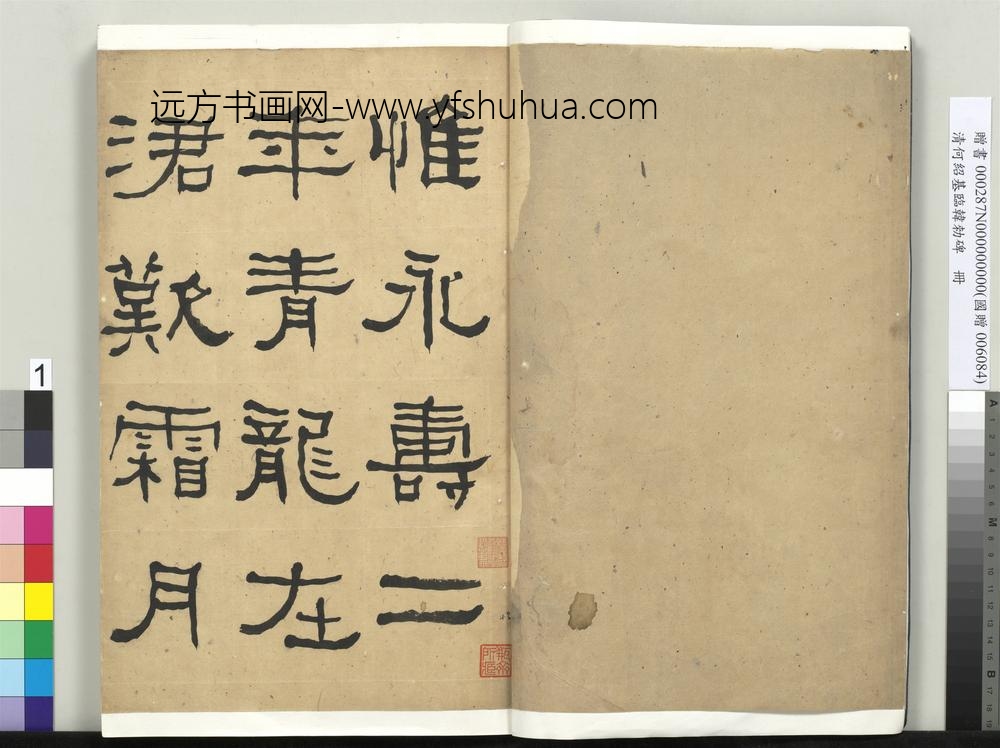 远方书画网-www.yfshuhua.com
惟永壽二
年青龍在
涒歎霜月
贈書 000287N000000000(國贈 006084)
清何紹基臨韓勑碑 冊
1
A 1 2 3 4 5 6 M 8 9 10 11 12 13 14 15 B 17 18 19